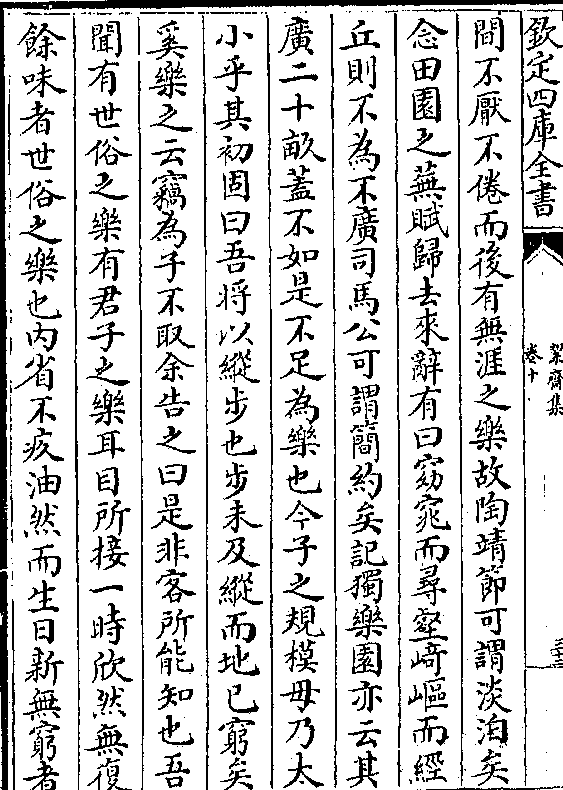 欽定四庫全書
絜齋集
卷十
三
間不厭不倦而後有無涯之樂故陶靖節可謂淡泊矣
念田園之蕪賦歸去來辭有曰窈窕而尋壑﨑嶇而經
丘則不為不廣司馬公可謂簡約矣記獨樂園亦云其
廣二十畝蓋不如是不足為樂也今子之規模毋乃太
小乎其初固曰吾將以縱步也步未及縱而地已窮矣
奚樂之云竊為子不取余告之曰是非客所能知也吾
聞有世俗之樂有君子之樂耳目所接一時欣然無復
餘味者世俗之樂也内省不疚油然而生日新無窮者